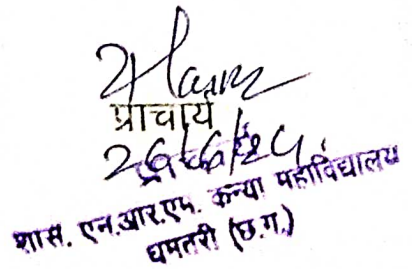 प्राचार्य
26/6/24.
प्राचार्य
शास. एन.आर.एम. कन्या महाविद्यालय
धमतरी (छ.ग.)